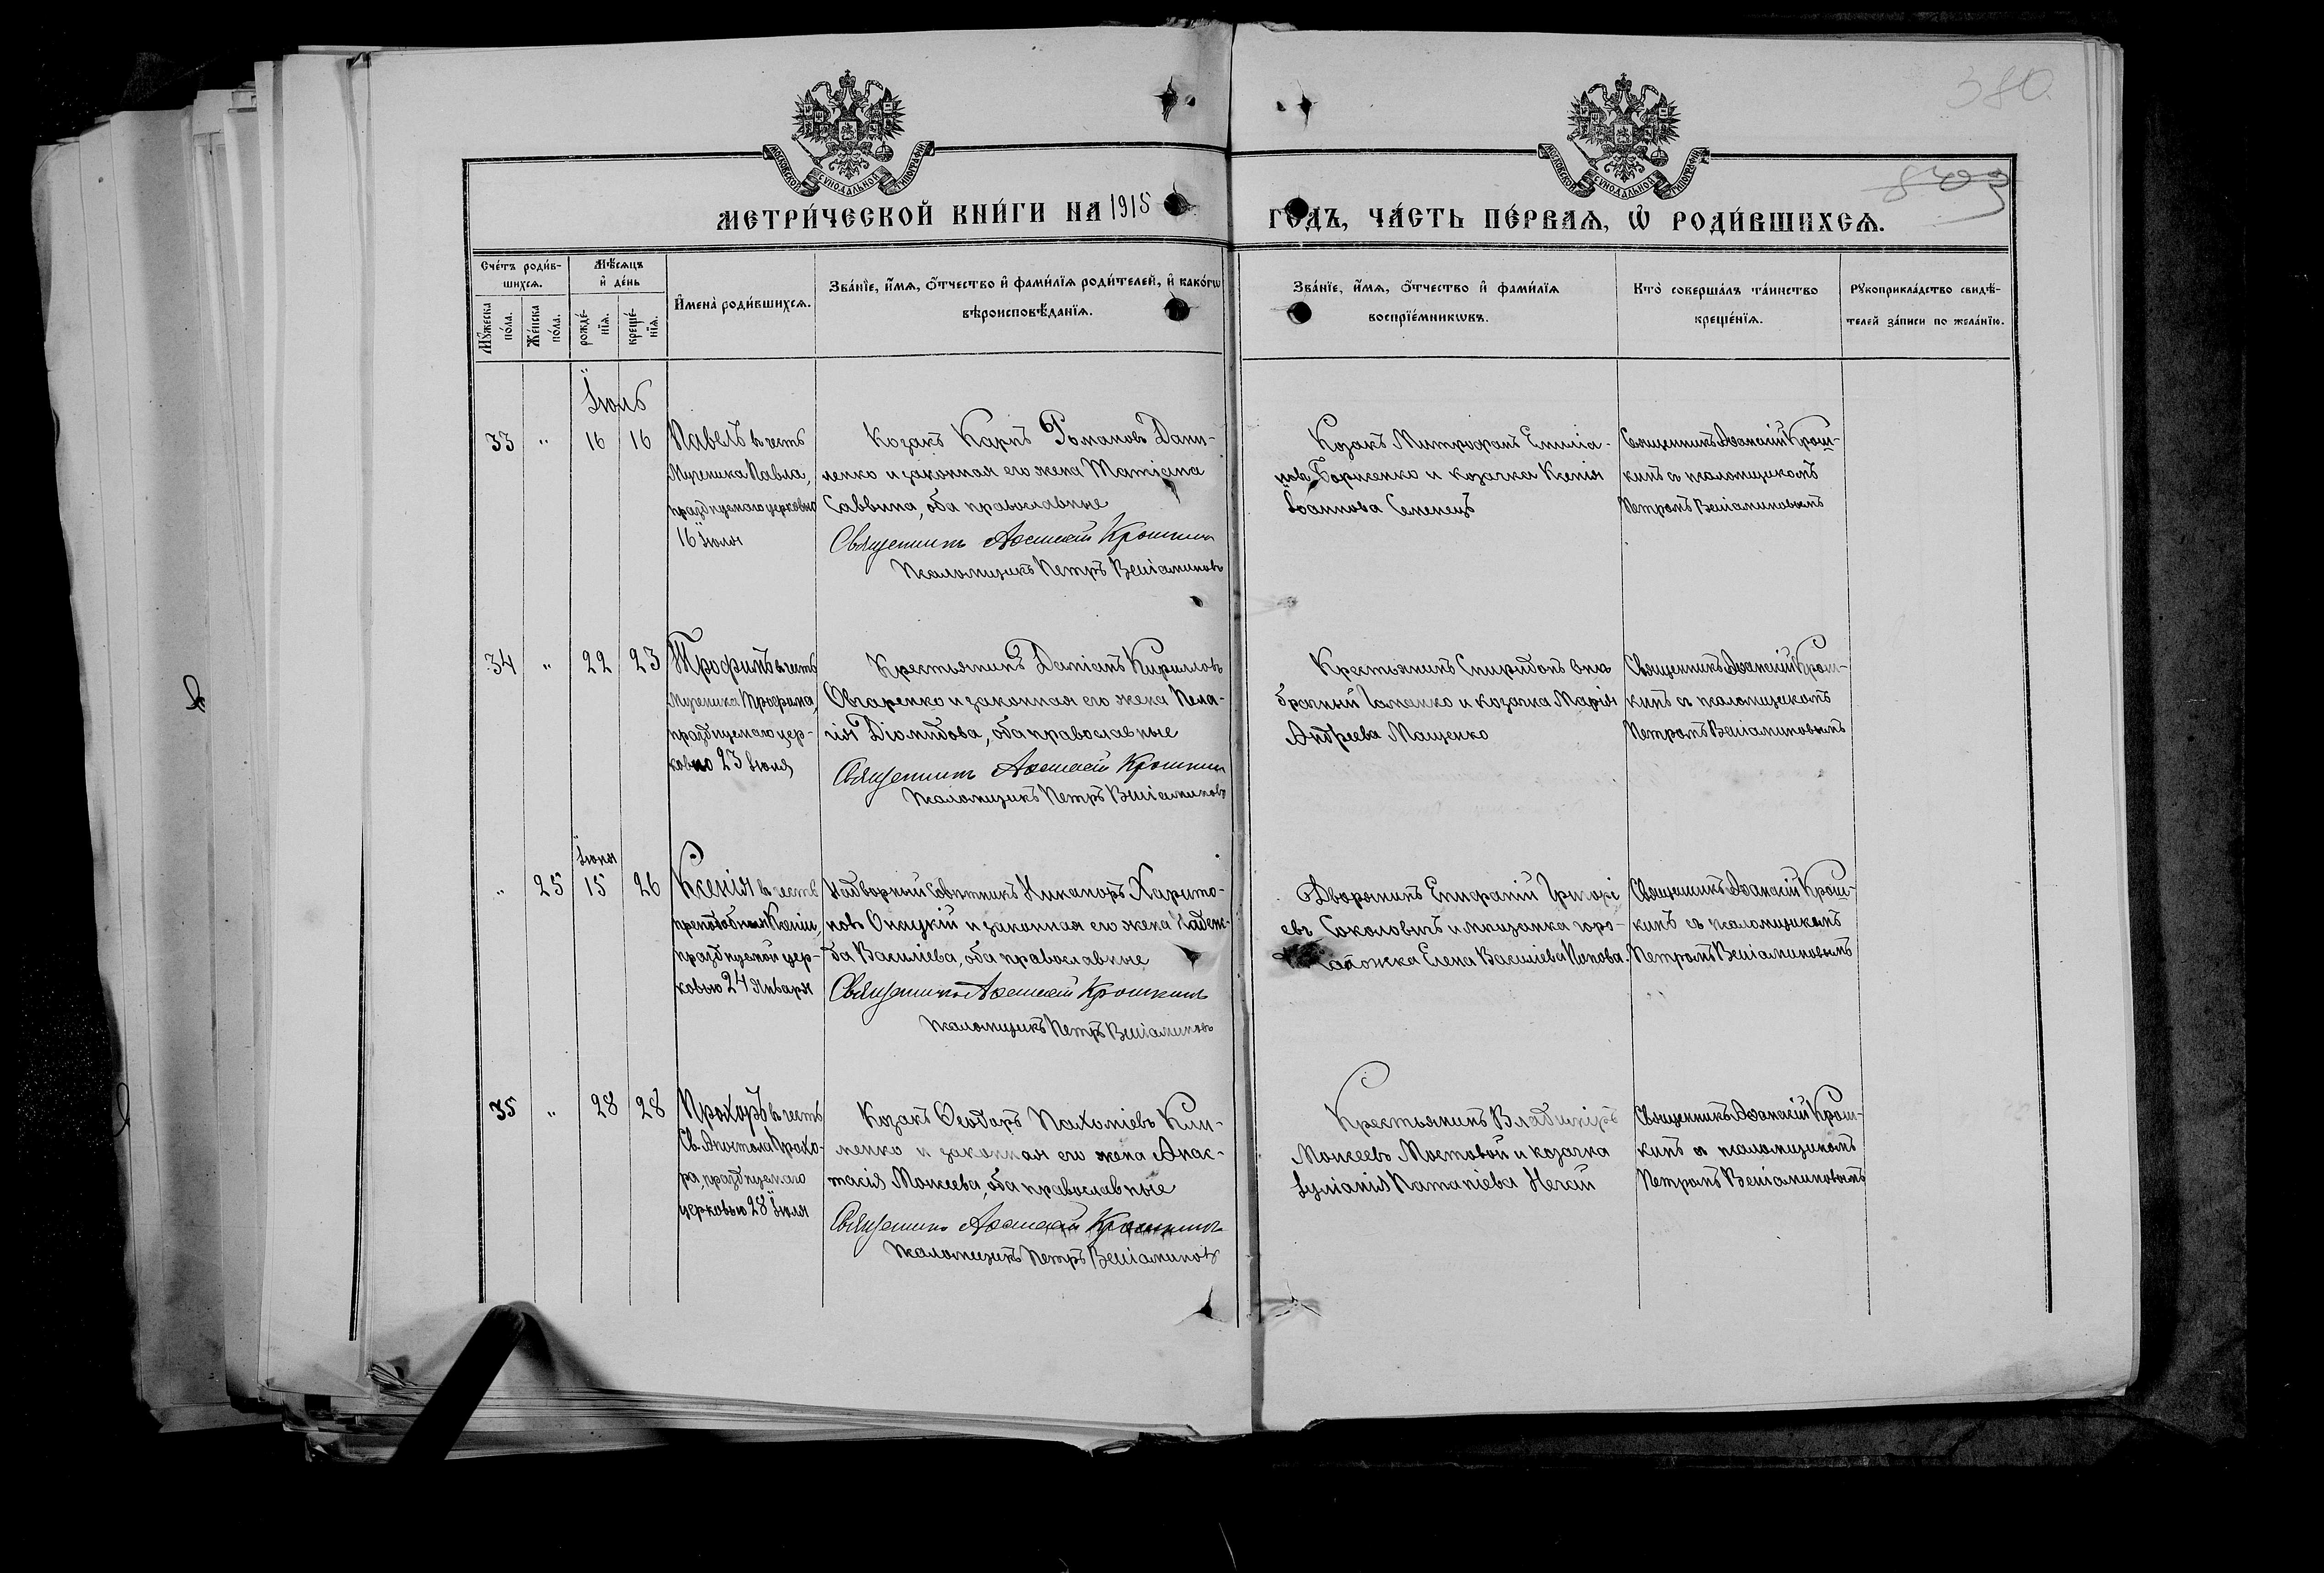 380.
МОСКОВСКОЙ СѴНОДАЛЬНОЙ ТИПОГРАФІИ
МОСКОВСКОЙ СѴНОДАЛЬНОЙ ТИПОГРАФІИ
МЕТРИ́ЧЕСКОЙ КНИ́ГИ НА 1915 ГОДЪ, ЧА́СТЬ ПЕ́РВАѦ, Ѽ РОДИ́ВШИХСѦ.
Сче́тъ роди́в-
шихсѧ.
Мѣ́сѧцъ
и҆ де́нь
Мꙋ́жеска
по́ла.
Же́нска
по́ла.
рожде́-
нїѧ.
креще́-
нїѧ.
И҆мена̀ роди́вшихсѧ.
Зва́нїе, и҆́мѧ, ѻ҆́тчество и҆ фами́лїѧ роди́телей, и҆ како́гѡ
вѣроисповѣ́данїѧ.
Зва́нїе, и҆́мѧ, ѻ҆́тчество и҆ фами́лїѧ
воспрїе́мникѡвъ.
Кто̀ соверша́лъ та́инство
креще́нїѧ.
Рꙋкоприкла́дство свидѣ́-
телей за́писи по жела́нїю.
Іюль
33 " 16 16
Павелъ въ честь
Мученика Павла,
празднуемаго церковію
16 Іюля
Козакъ Карпъ Романовъ Дани-
ленко и законная его жена Татіана
Саввина, оба православные
Священникъ Аѳанасій Крошкинъ
Псаломщикъ Петръ Веніаминовъ
Козакъ Митрофанъ Емилiа-
новъ Борченко и козачка Ксенія
Іоаннова Семенецъ
Священникъ Аѳанасій Крош-
кинъ съ псаломщикомъ
Петромъ Веніаминовымъ
34 " 22 23
Трофимъ въ честь
Мученика Трофима,
празднуемаго цер-
ковію 23 Іюля
Крестьянинъ Даміанъ Кирилловъ
Овчаренко и законная его жена Пела-
гія Діомидова, оба православные
Священникъ Аѳанасій Крошкинъ
Псаломщикъ Петръ Веніаминовъ
Крестьянинъ Спиридонъ Вна
брачный и козачка Марія
Андреева Мащенко
Священникъ Аѳанасій Крош-
кинъ съ псаломщикомъ
Петромъ Веніаминовымъ
Іюня
" 25 15 26
Ксенія въ честь
преподобныя Ксеніи,
празднуемой цер-
ковью 24 Января
Надворный Совѣтникъ Никаноръ Харито-
новъ Оницкій и законная его жена Надеж-
да Василіева, оба православные
Священникъ Аѳанасій Крошкинъ
Псаломщикъ Петръ Веніаминовъ
Дворянинъ Епифаній Григорі
евъ Соколовичъ и мѣщанка горо-
Елена Василіева Попова.
Священникъ Аѳанасій Крош-
кинъ съ псаломщикомъ
Петромъ Веніаминовымъ
35 " 28 28
Прохоръ въ честь
Св. Апостола Прохо-
ра, празднуемаго
церковью 28 Іюля
Козакъ Ѳеодоръ Пахоміевъ Кли-
менко и законная его жена Анас-
тасія Моисеева, оба православные
Священникъ Аѳанасій Крошкинъ
Псаломщикъ Петръ Веніаминовъ
Крестьянинъ Владиміръ
Моисеевъ Мостовой и козачка
Іуліанія Нечай
Священникъ Аѳанасій Крош-
кинъ съ псаломщикомъ
Петромъ Веніаминовымъ